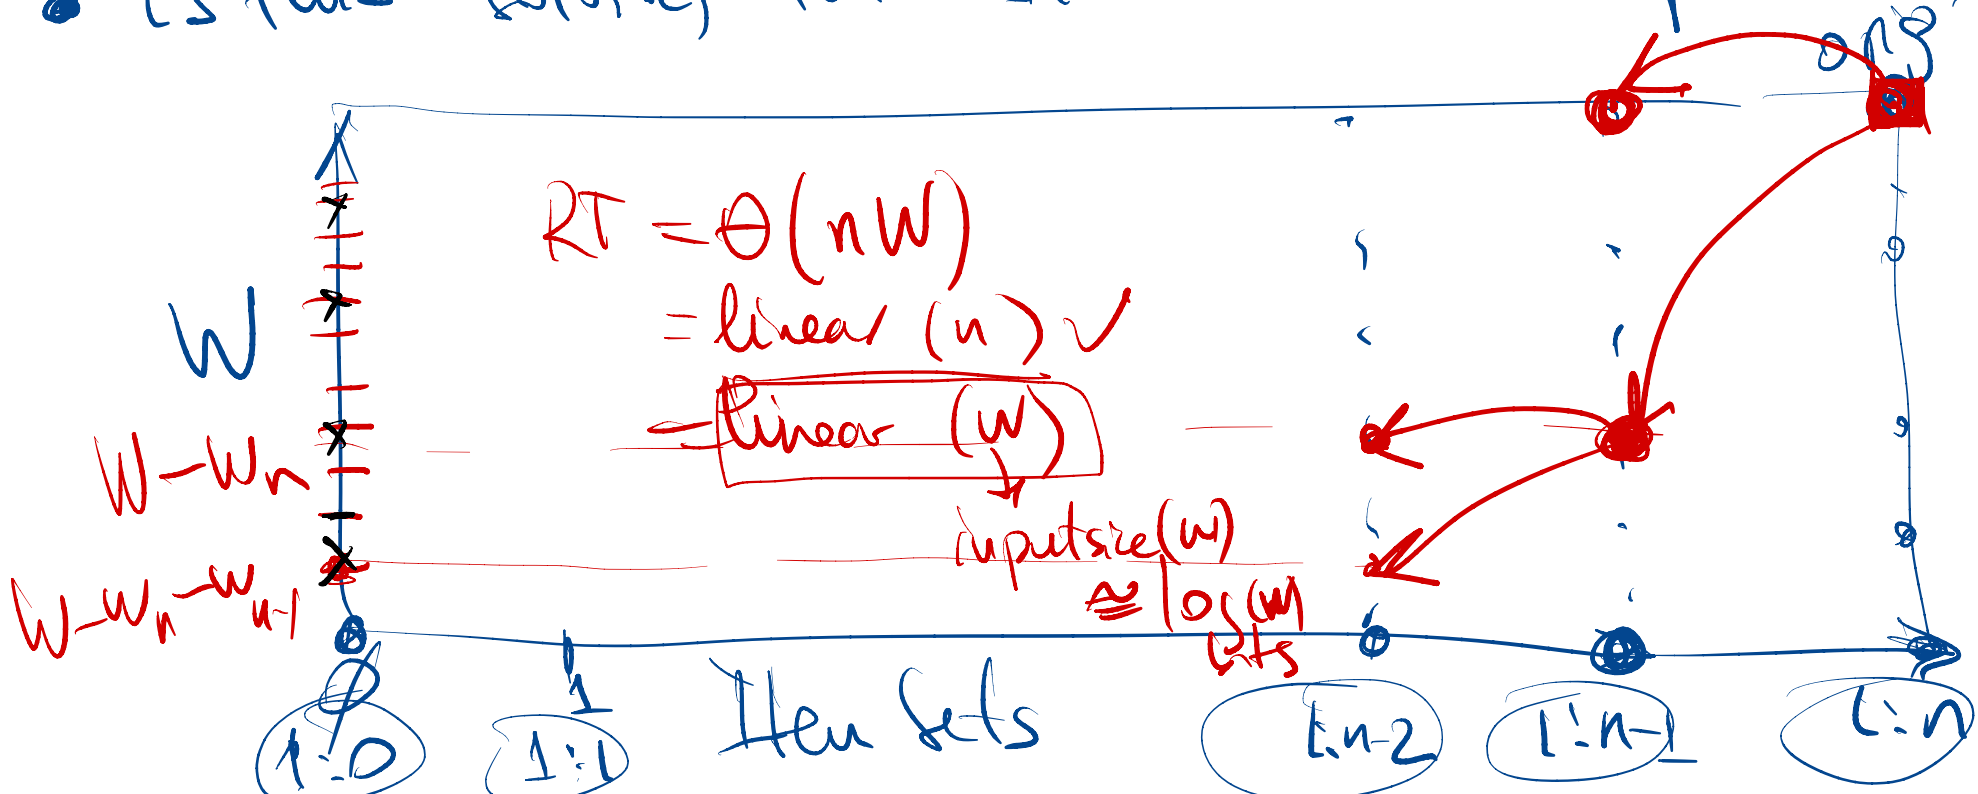 RT = Θ(nW)
= linear (n) ✓
W
= linear (W)
W-wn
inputsize(W)
≅ log(W)
bits
W-wn-wn-1
∅
1
Item Sets
1:0
1:1
1:n-2
1:n-1
1:n